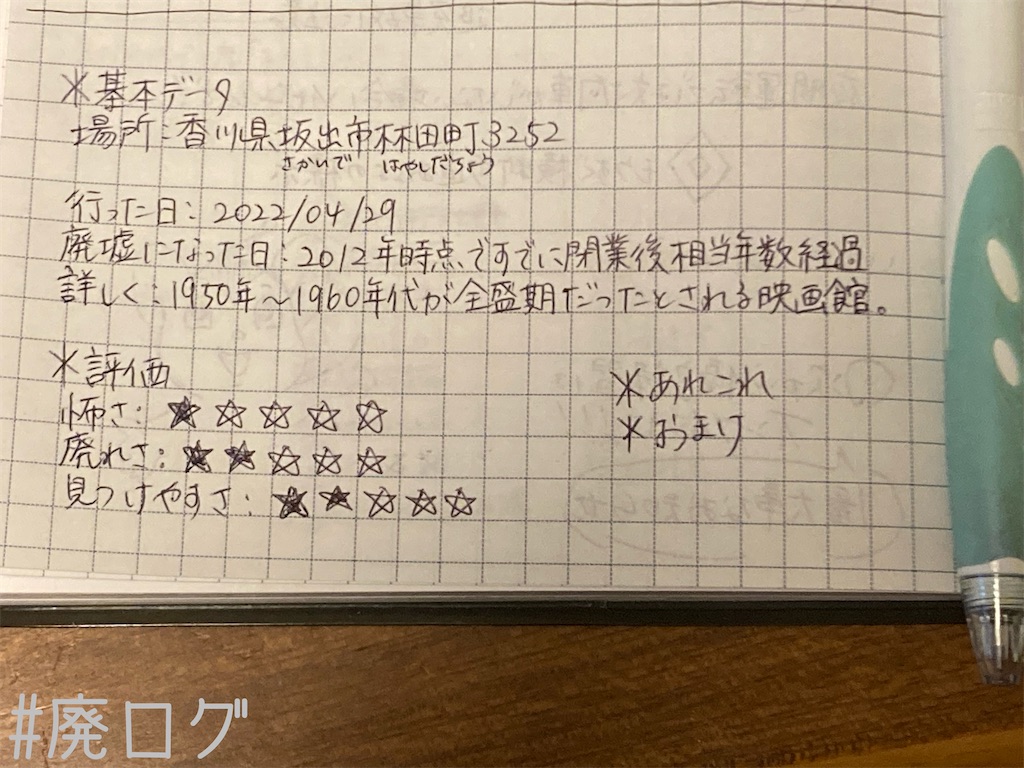 *基本データ
場所:香川県坂出市林田町3252
さかいで はやしだちょう
行った日:2022/04/29
廃墟になった日:2012年時点ですでに閉業後相当年数経過
詳しく:1950年~1960年代が全盛期だったとされる映画館。
*評価
怖さ:★☆☆☆☆
廃れさ:★★☆☆☆
見つけやすさ:★★☆☆☆
*あれこれ
*おまけ
#廃ログ